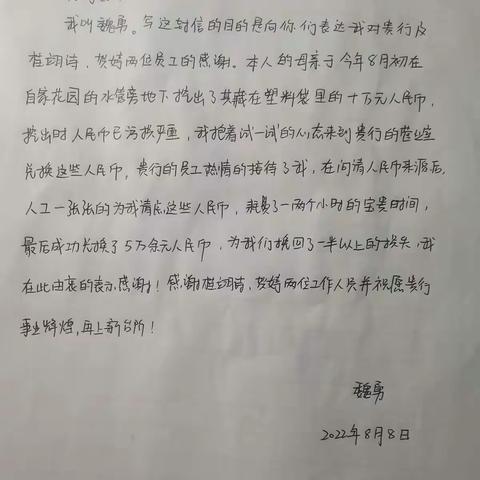 我叫魏勇。写这封信的目的是向你们表达我对贵行及
崔翊诗、贺婷两位员工的感谢。本人的母亲于今年8月初在
自家花园的水管旁地下挖出了其藏在塑料袋里的十万元人民币,
挖出时人民币已污损严重,我抱着试一试的心态来到贵行的营业室
兑换这些人民币,贵行的员工热情的接待了我,在问清人民币来源后,
人工一张张的为我清点这些人民币,耗费了一两个小时的宝贵时间,
最后成功兑换了5万余元人民币,为我们挽回了一半以上的损失,我
在此由衷的表示感谢!感谢崔翊诗、贺婷两位工作人员并祝愿贵行
事业辉煌,再上新台阶!
魏勇
2022年8月8日